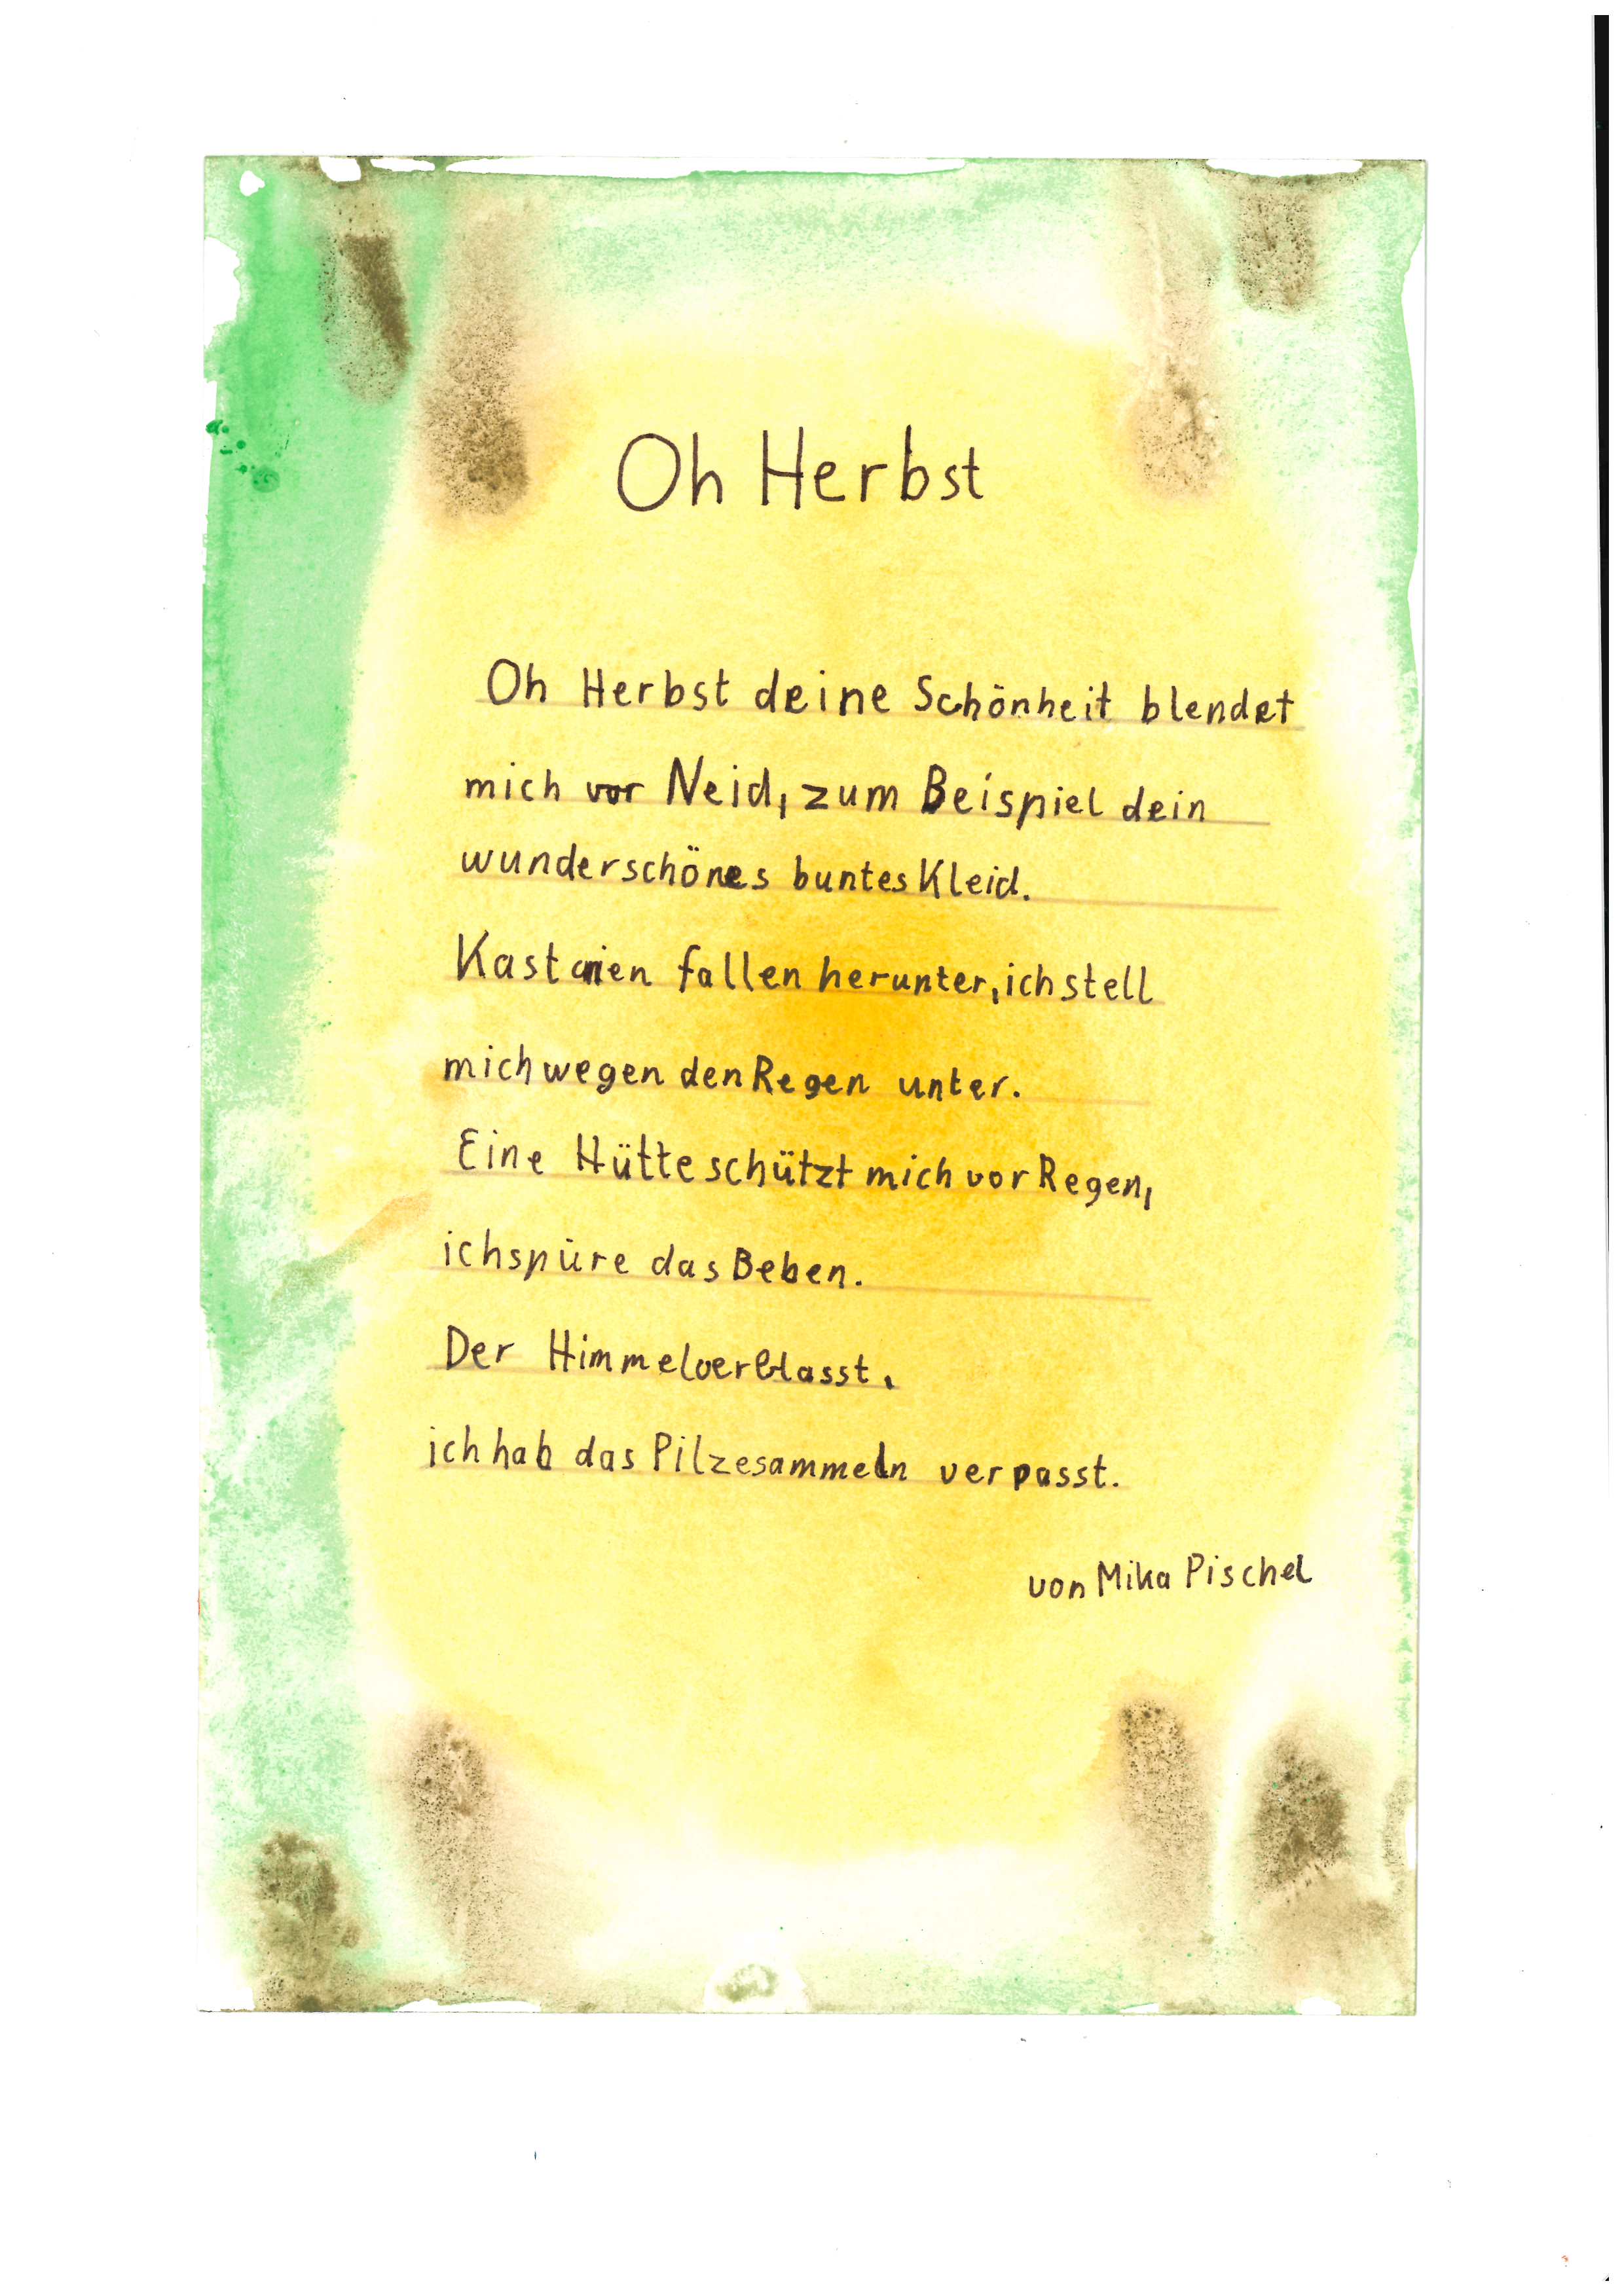 Oh Herbst
Oh Herbst deine Schönheit blendet
mich vor Neid, zum Beispiel dein
wunderschönes buntes Kleid.
Kastanien fallen herunter, ich stell
mich wegen den Regen unter.
Eine Hütte schützt mich vor Regen,
ich spüre das Beben.
Der Himmel verblasst,
ich hab das Pilzesammeln verpasst.
von Mika Pischel